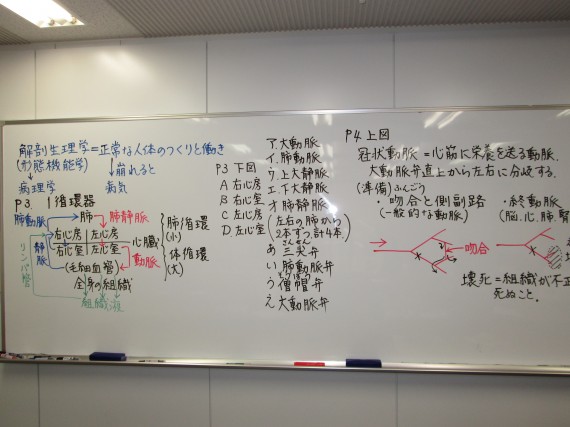 解剖生理学=正常な人体のつくりと働き
(形態機能学) ↓崩れると
病理学 病気
P3. 1循環器
肺動脈 肺 肺静脈
右心房 左心房 心臓
右心室 左心室
静脈 動脈
(毛細血管)
全身の組織
組織液
リンパ管
肺循環
(小)
体循環
(大)
P3 下図
A 右心房
B 右心室
C 左心房
D 左心室
ア.大動脈
イ.肺動脈
ウ.上大静脈
エ.下大静脈
オ.肺静脈
(左右の肺から
2本ずつ、計4本)
さんせん
あ 三尖弁
い 肺動脈弁
そうぼう
う 僧帽弁
え 大動脈弁
P4.上図
冠状動脈=心筋に栄養を送る動脈.
大動脈弁直上から左右に分岐する.
(準備) ふんごう
・吻合と側副路
(一般的な動脈)
吻合
・終動脈
(脳、心、肺、腎
壊死=組織が不正
死ぬこと.